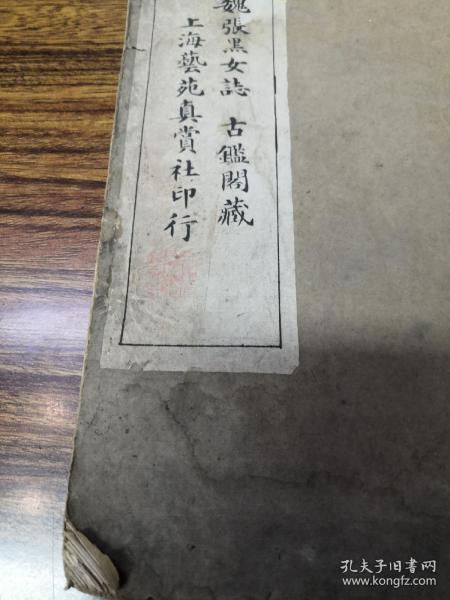 魏張黑女誌 古鑑閣藏
上海藝苑真賞社印行
孔夫子旧书网
www.kongfz.com